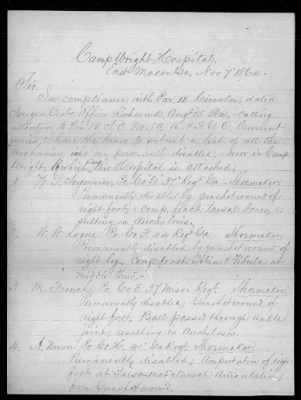 Camp Wright Hospital,
East Macon Ga, Nov 7" 1864.
Sir.
In compliance with Par Circular, dated
Surgeon Genls Office Richmond, Augt 1864, calling
attention to Par A. & I. G. O. Current
series, I have the honor to submit a list of all the
mechanics who are permanently disabled, now in Camp
Wright, to which this Hospital is attached.
1 Pv Co 37" Regt Ga Shoemaker
Permanently disabled by gunshot wound of
right foot Comp fract. tarsal bones, re-
sulting in Anchylosis.
2 W. W. Pv. Co F. 44" Regt Ga Shoemaker
Permanently disabled by gunshot wound of
right leg, Comp fract. Tibia & Fibula at
middle third.
3 M. French, Pv Co E 37 Miss Regt. Shoemaker
Permanently disabled, Gunshot wound of
right foot, Ball passed through ankle
joint, resulting in Anchylosis.
4 A. Nixon Pv Co H. 41" Ga Regt. Shoemaker
Permanently disabled, Amputation of right
foot at Tarso-metatarsal Articulation,
from Gunshot wound.